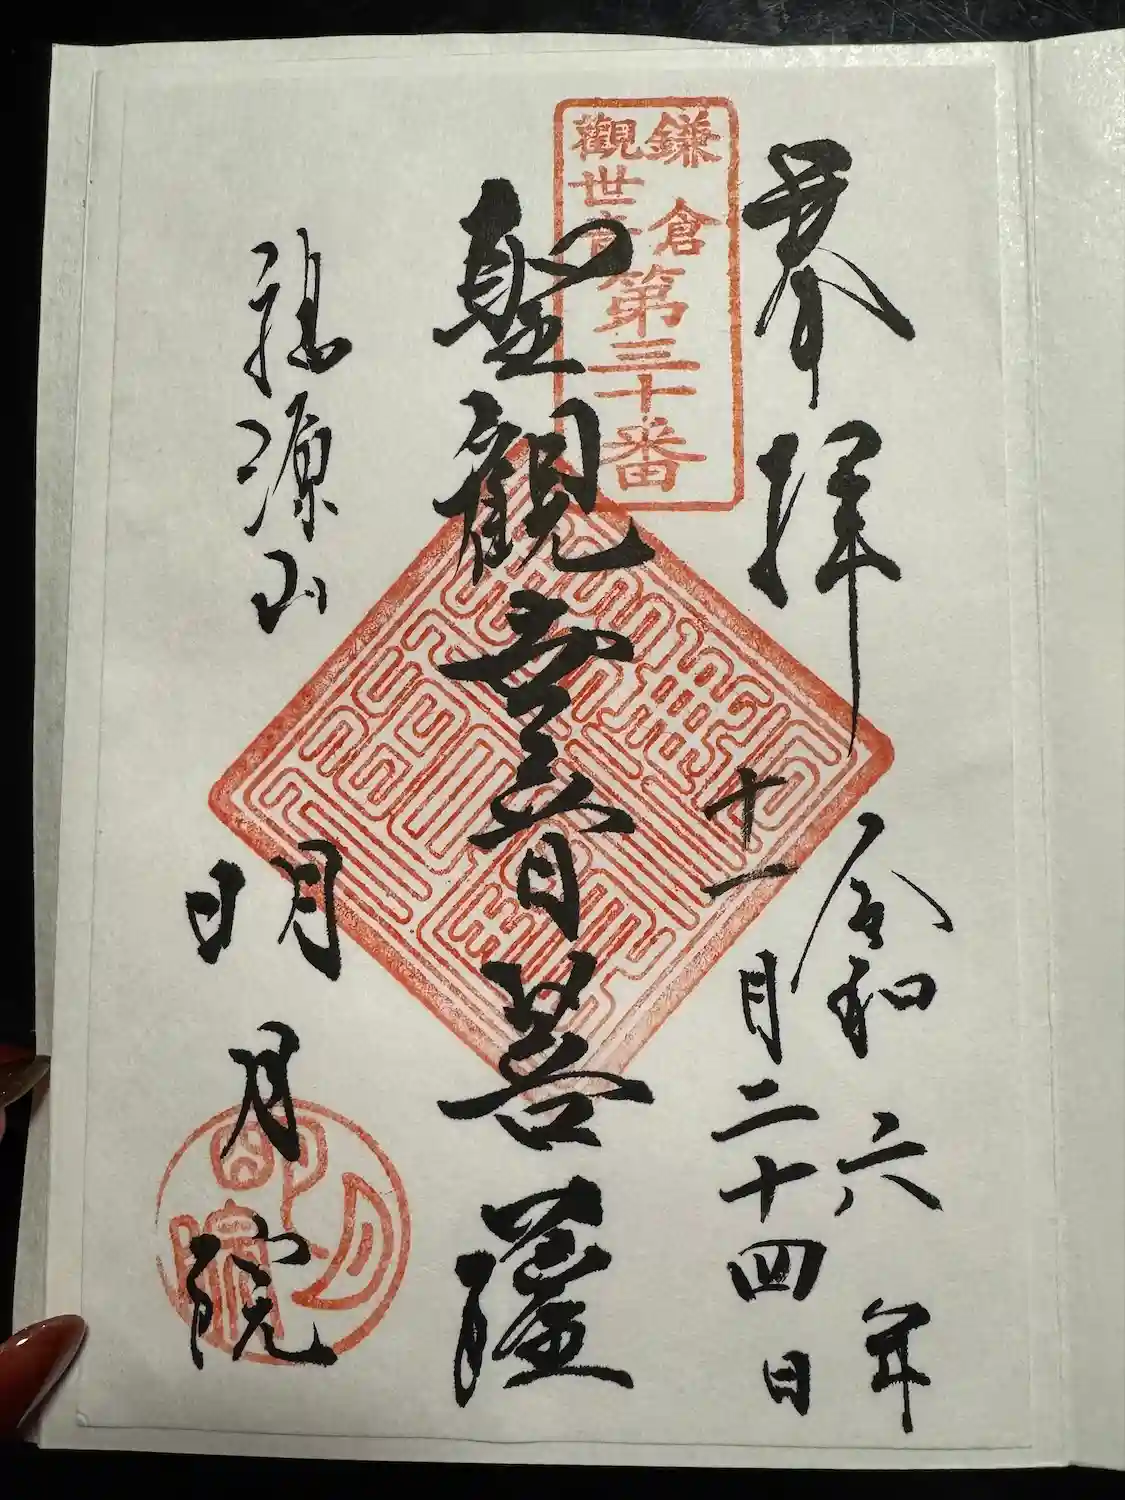 奉拝
令和六年
十一月二十四日
鎌倉
觀世音
第三十番
聖観世音菩薩
福源山
明月院